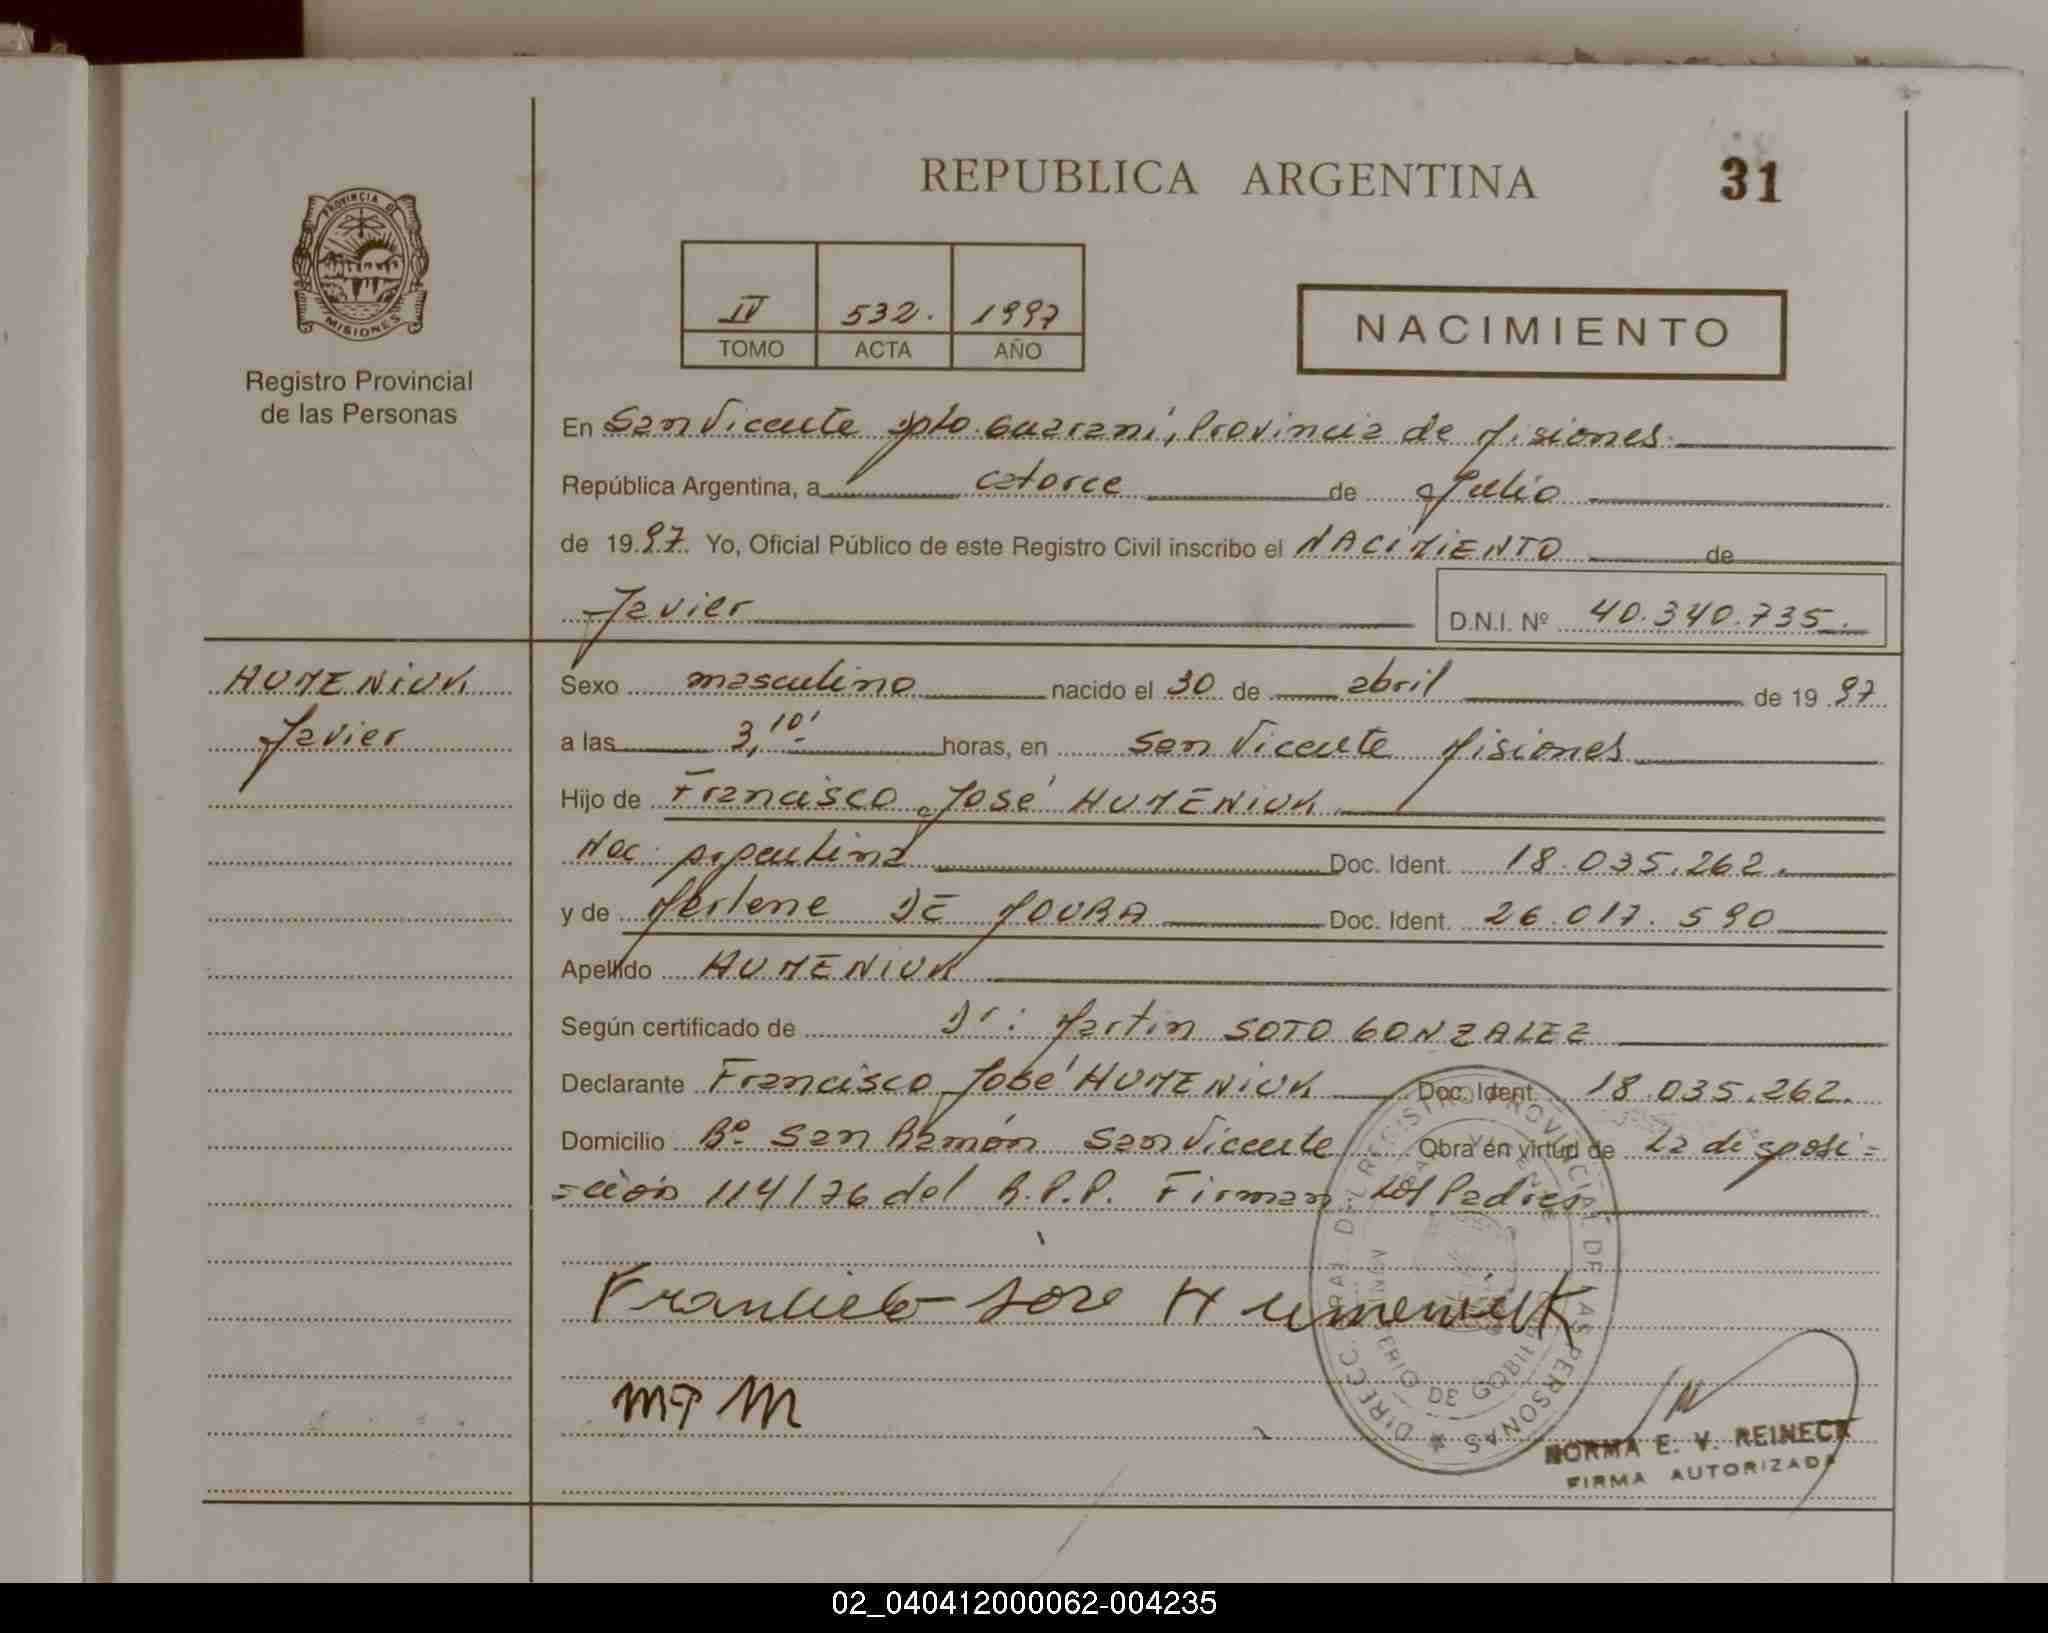 REPUBLICA ARGENTINA
31
PROVINCIA DE
MISIONES
Registro Provincial
de las Personas
IV 532. 1997
TOMO ACTA AÑO
NACIMIENTO
En San Vicente Dpto. Guaraní, Provincia de Misiones.
República Argentina, a catorce de Julio
de 1997. Yo, Oficial Público de este Registro Civil inscribo el NACIMIENTO de
Javier D.N.I. Nº 40.340.735.
HUMENIUK
Javier
Sexo masculino nacido el 30 de abril de 1997
a las 3,10' horas, en San Vicente Misiones
Hijo de Francisco José HUMENIUK
Nac. Argentina Doc. Ident. 18.035.262.
y de Marlene DE MOURA Doc. Ident. 26.017.590
Apellido HUMENIUK
Según certificado de Dr: Martin SOTO GONZALEZ
Declarante Francisco José HUMENIUK Doc. Ident. 18.035.262.
Domicilio Bº San Ramón San Vicente Obra en virtud de La disposi=
=ción 114/76 del R.P.P. Firman los Padres
Francisco Jose Humeniuk
NORMA E. V. REINECK
FIRMA AUTORIZADA
02_040412000062-004235